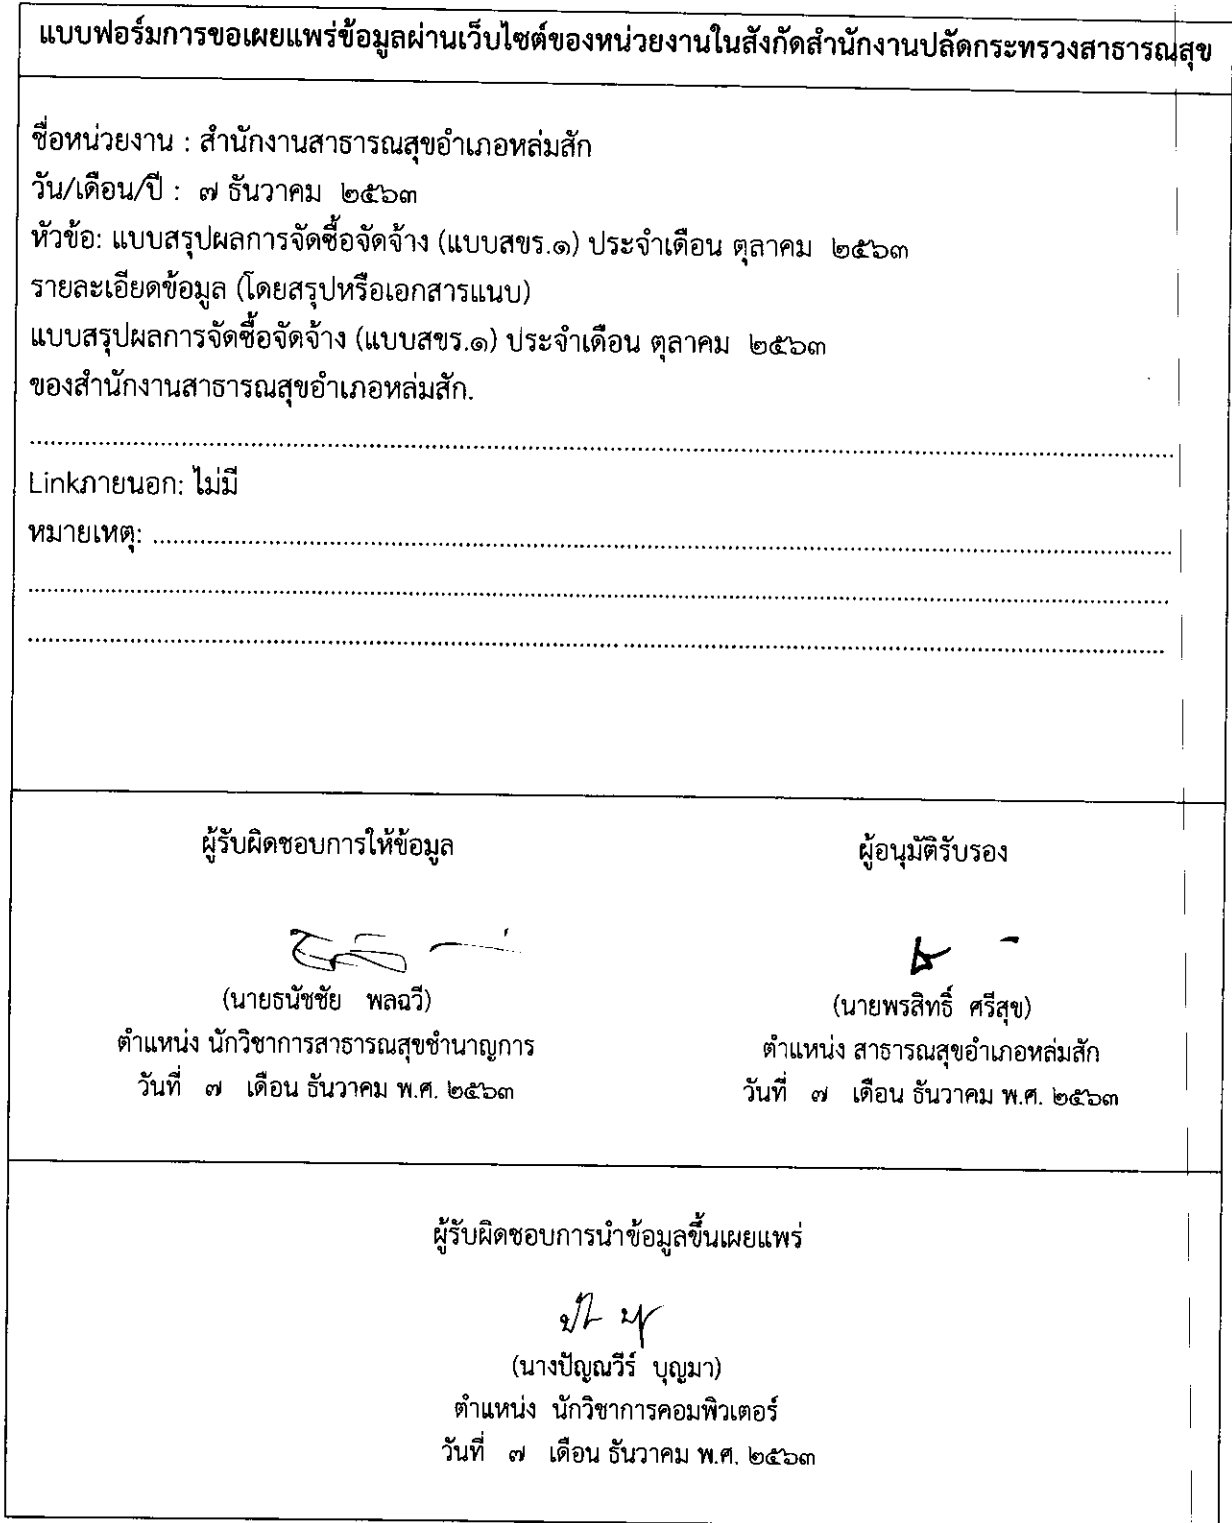 แบบฟอร์มการขอเผยแพร่ข้อมูลผ่านเว็บไซต์ของหน่วยงานในสังกัดสำนักงานปลัดกระทรวงสาธารณสุข
ชื่อหน่วยงาน : สำนักงานสาธารณสุขอำเภอหล่มสัก
วัน/เดือน/ปี : ๗ ธันวาคม ๒๕๖๓
หัวข้อ: แบบสรุปผลการจัดซื้อจัดจ้าง (แบบสขร.๑) ประจำเดือน ตุลาคม ๒๕๖๓
รายละเอียดข้อมูล (โดยสรุปหรือเอกสารแนบ)
แบบสรุปผลการจัดซื้อจัดจ้าง (แบบสขร.๑) ประจำเดือน ตุลาคม ๒๕๖๓
ของสำนักงานสาธารณสุขอำเภอหล่มสัก.
Linkภายนอก: ไม่มี
หมายเหตุ:
ผู้รับผิดชอบการให้ข้อมูล
(นายธนัชชัย พลฉวี)
ตำแหน่ง นักวิชาการสาธารณสุขชำนาญการ
วันที่ ๗ เดือน ธันวาคม พ.ศ. ๒๕๖๓
ผู้อนุมัติรับรอง
(นายพรสิทธิ์ ศรีสุข)
ตำแหน่ง สาธารณสุขอำเภอหล่มสัก
วันที่ ๗ เดือน ธันวาคม พ.ศ. ๒๕๖๓
ผู้รับผิดชอบการนำข้อมูลขึ้นเผยแพร่
(นางปัญณวีร์ บุญมา)
ตำแหน่ง นักวิชาการคอมพิวเตอร์
วันที่ ๗ เดือน ธันวาคม พ.ศ. ๒๕๖๓